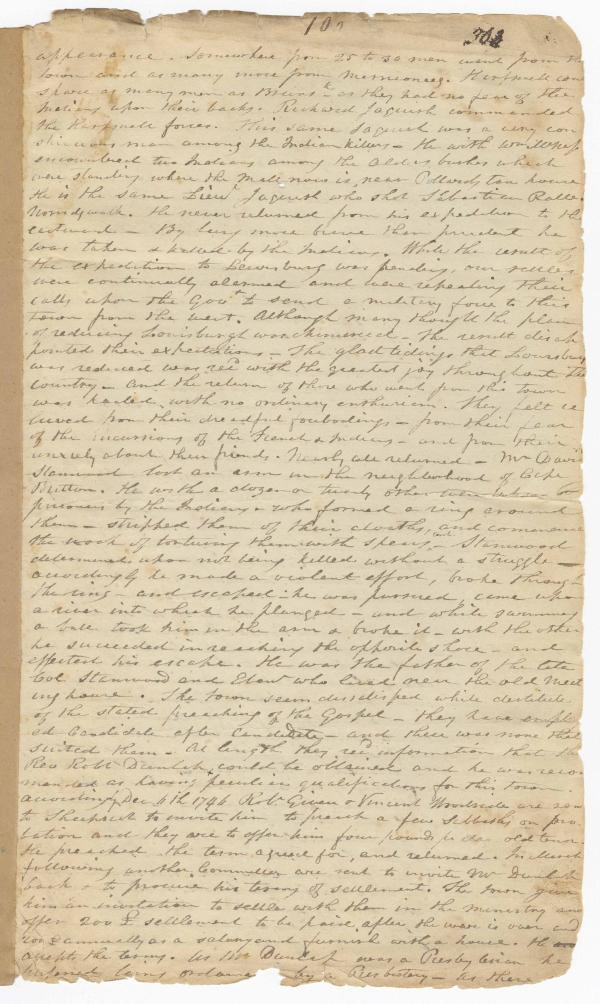 103
appearance. Somewhere from 25 to 30 men went from the
town and as many more from Merriconeeg. Harpswell could
spare as many men as Brunsk as they had no fear of the
Indians upon their backs. Richard Jaquish commanded
the Harpswell forces. This same Jaquish was a very con
spicuous man among the Indian killers. He with
encountered two Indians among the alder bushes which
were standing where the Mall now is, near tan house
He is the same Lieut Jaquish who shot Sebastian Ralle
Norridgwalk. He never returned from his expedition to the
eastward - By being more brave than prudent he
was taken & killed by the Indians. While the result of
the expedition to Lewisburg was pending, our settlers
were continually alarmed and were repeating their
calls upon the Govt to send a military force to this
town from the west. Although many thought the plan
of reducing Louisburgh was chimerical - the result disap
pointed their expectations - The glad tidings that Louisburg
was reduced was rec with the greatest joy throughout the
country - and the return of those who went from this town
was hailed with no ordinary enthusiasm. They felt re
lieved from their dreadful forbodings - from their fear
of the incursions of the French & Indians - and from their
anxiety about their friends. Nearly all returned - Mr David
Stanwood lost an arm in the neighborhood of Cape
Britton. He with a dozen or twenty other were taken
prisoners by the Indians - who formed a ring around
them - stripped them of their cloaths, and commence
the work of torturing them with spears, &c - Stanwood
determined upon not being killed without a struggle -
accordingly he made a violent effort, broke through
the ring - and escaped - he was pursued, came upon
a river into which he plunged - and while swimming
a ball took him in the arm & broke it - with the other
he succeeded in reaching the opposite shore - and
effected his escape. He was the father of the late
Col Stanwood and Eben who lived near the old Meet
ing house. The town seem dissatisfied while destitute
of the stated preaching of the Gospel - they have employ
ed Candidate after Candidate - and there was none that
suited them - At length they recd information that the
Rev Robt Dunlap could be obtained and he was recom
mended as having peculiar qualifications for this town.
accordingly Dec 4th 1746 Robt Given & Vincent Woodside are sent
to Sheepscut to invite him to preach a few Sabbaths on pro
bation and they are to offer him four pounds pr day old tenor.
He preached the term agreed for, and returned. In March
following another Committee are sent to invite Mr Dunlap
back & to procure his terms of settlement. The town give
him an invitation to settle with them in the ministry and
offer 200 £ settlement to be paid after the war is over and
200 £ annually as a salary and furnish with a house. He
accepts the terms. As Mr Dunlap was a Presbyterian he
prefered being ordained by a Presbytery - as there